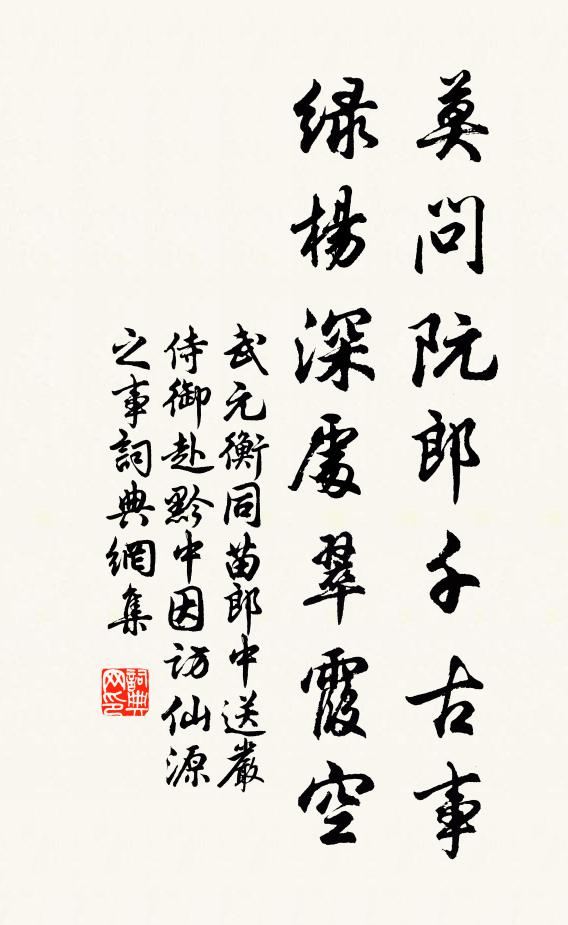 莫問阮郎千古事
綠楊深處翠霞空
武元衡同苗郎中送嚴
侍御赴黔中因訪仙源
之事詞典網集
詞典网印